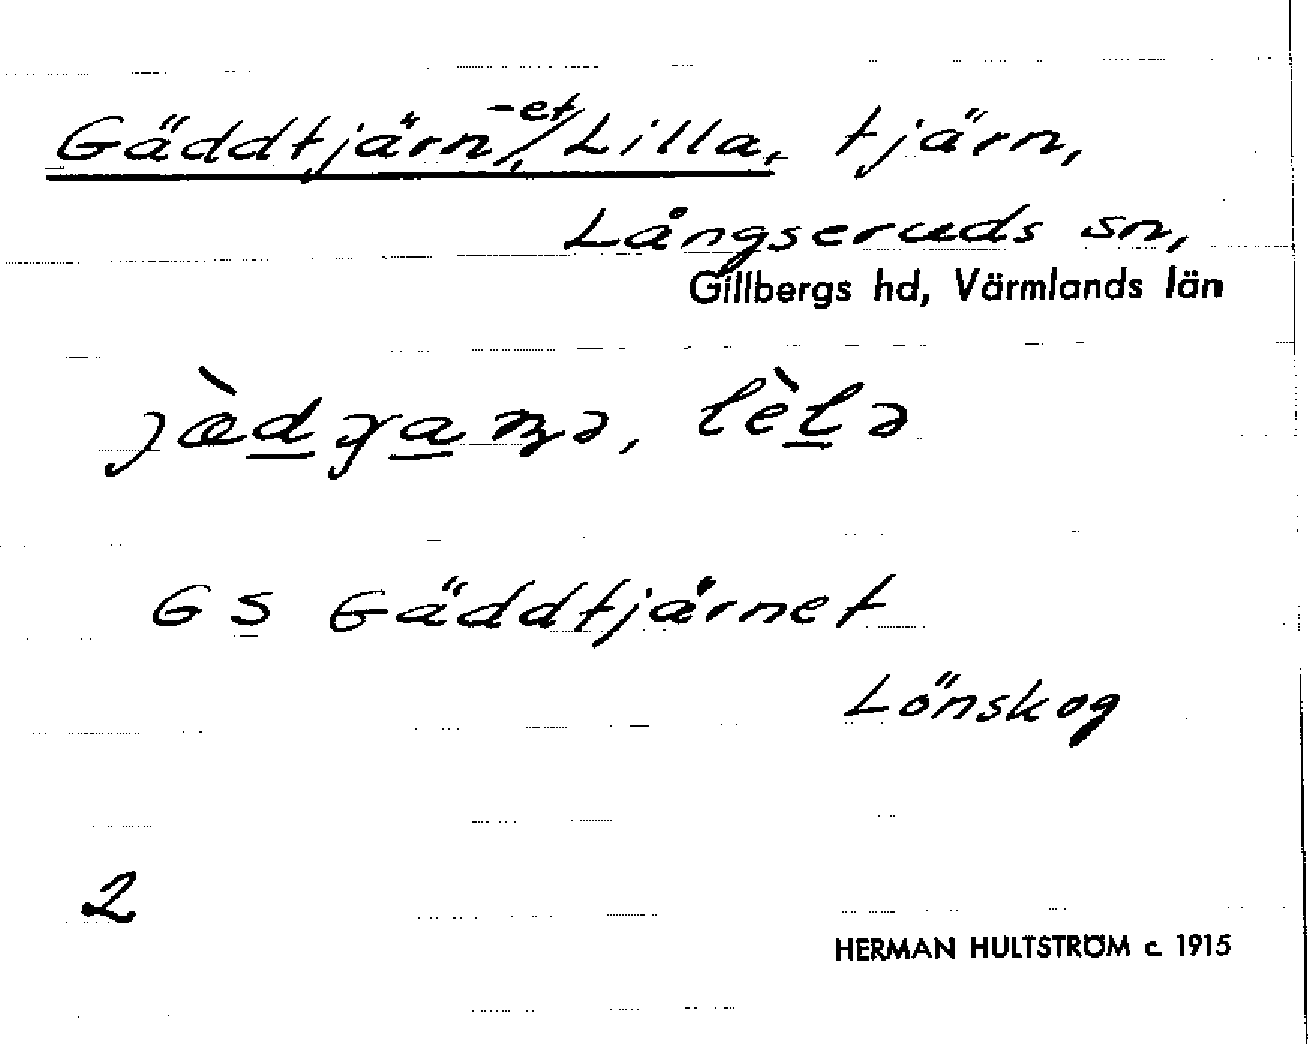 Gäddtjärn,-et/Lilla, tjärn,
Långseruds sn,
Gillbergs hd, Värmlands län
lèlə
GS Gäddtjärnet
Lönskog
2
HERMAN HULTSTRÖM c. 1915